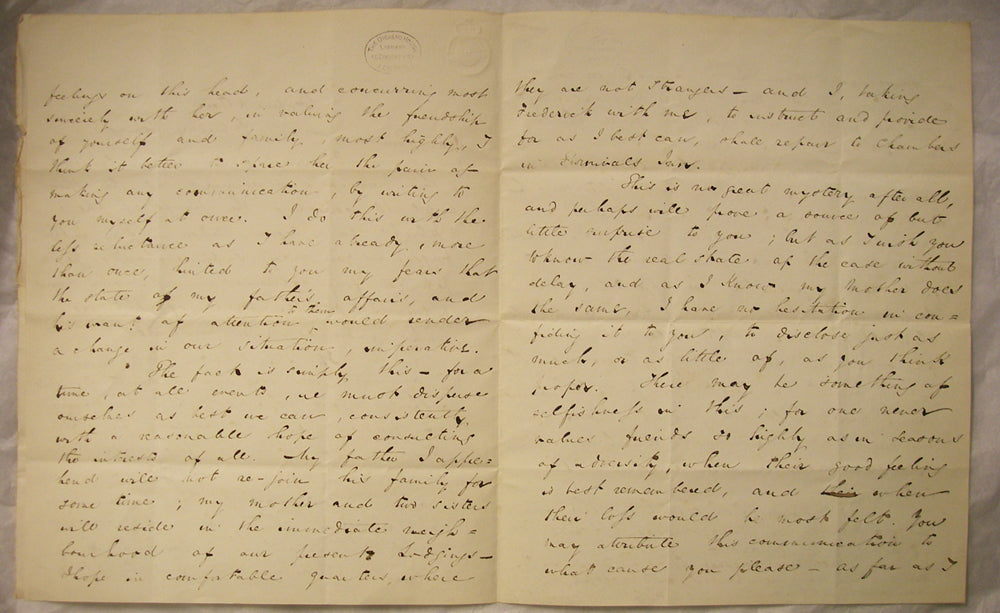 THE DICKENS HOUSE
LIBRARY
feelings on this head, and concurring most
sincerely with her, in valuing the friendship
of yourself and family, most highly, I
think it better to spare her the pain of
making any communication, by writing to
you myself at once. I do this with the
less reluctance as I have already, more
than once, hinted to you my fears that
the state of my father's affairs, and
his want of attention to them would render
a change in our situation, imperative.
The fact is simply this – for a
time, at all events, we must disperse
ourselves as best we can, consistently,
with a reasonable hope of consulting
the interests of all. My father I appre=
hend will not re-join his family for
some time; my mother and two sisters
will reside in the immediate neigh=
bourhood of our present Lodgings –
I hope in comfortable quarters, where
they are not Strangers – and I, taking
Frederick with me, to instruct and provide
for as I best can, shall repair to Chambers
in Furnivals Inn.
This is no great mystery after all,
and perhaps will prove a source of but
little surprise to you; but as I wish you
to know the real state of the case without
delay, and as I know my Mother does
the same, I have no hesitation in con=
fiding it to you, to disclose just as
much, or as little of, as you think
proper. There may be something of
selfishness in this; for one never
values friends so highly as in Seasons
of adversity, when their good feeling
is best remembered, and their when
their loss would be most felt. You
may attribute this communication to
what cause you please – as far as I